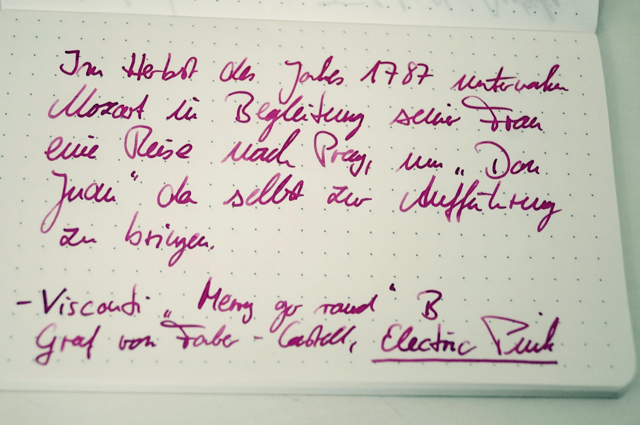 Im Herbst des Jahres 1787 unternahm
Mozart in Begleitung seiner Frau
eine Reise nach Prag, um „Don
Juan“ da selbst zur Aufführung
zu bringen.
- Visconti „Merry go round“ B
Graf von Faber-Castell, Electric Pink